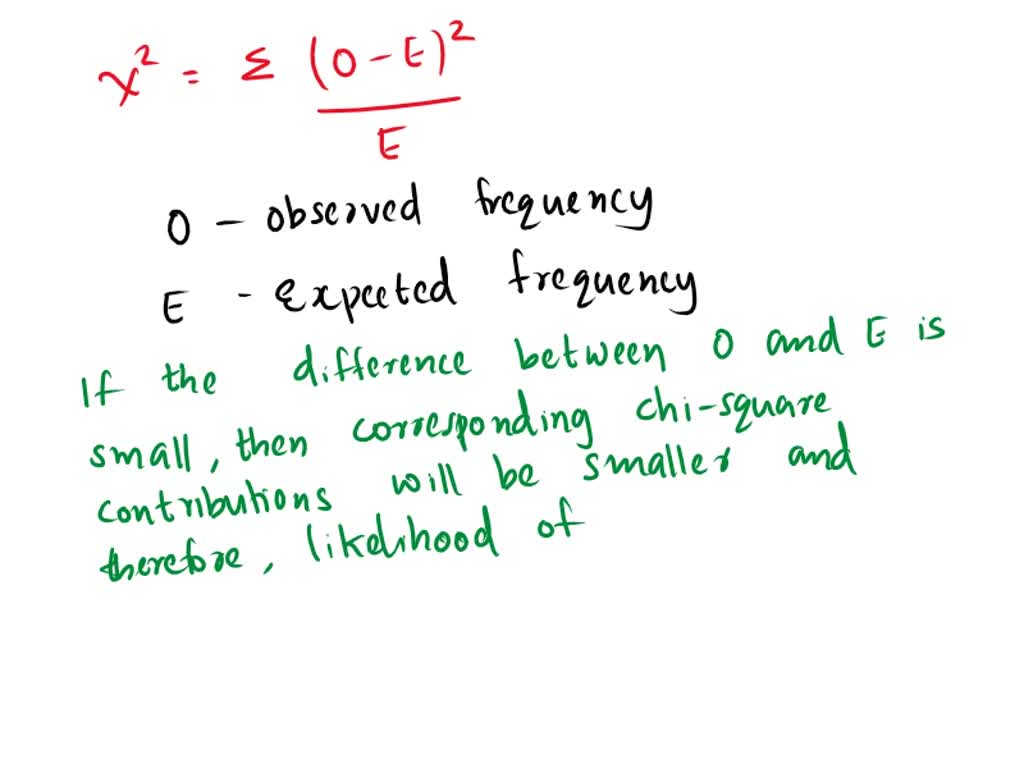 χ² = Σ (O-E)²
E
O - observed frequency
E - Expected frequency
If the difference between O and E is
small, then corresponding chi-square
contributions will be smaller and
therefore, likelihood of